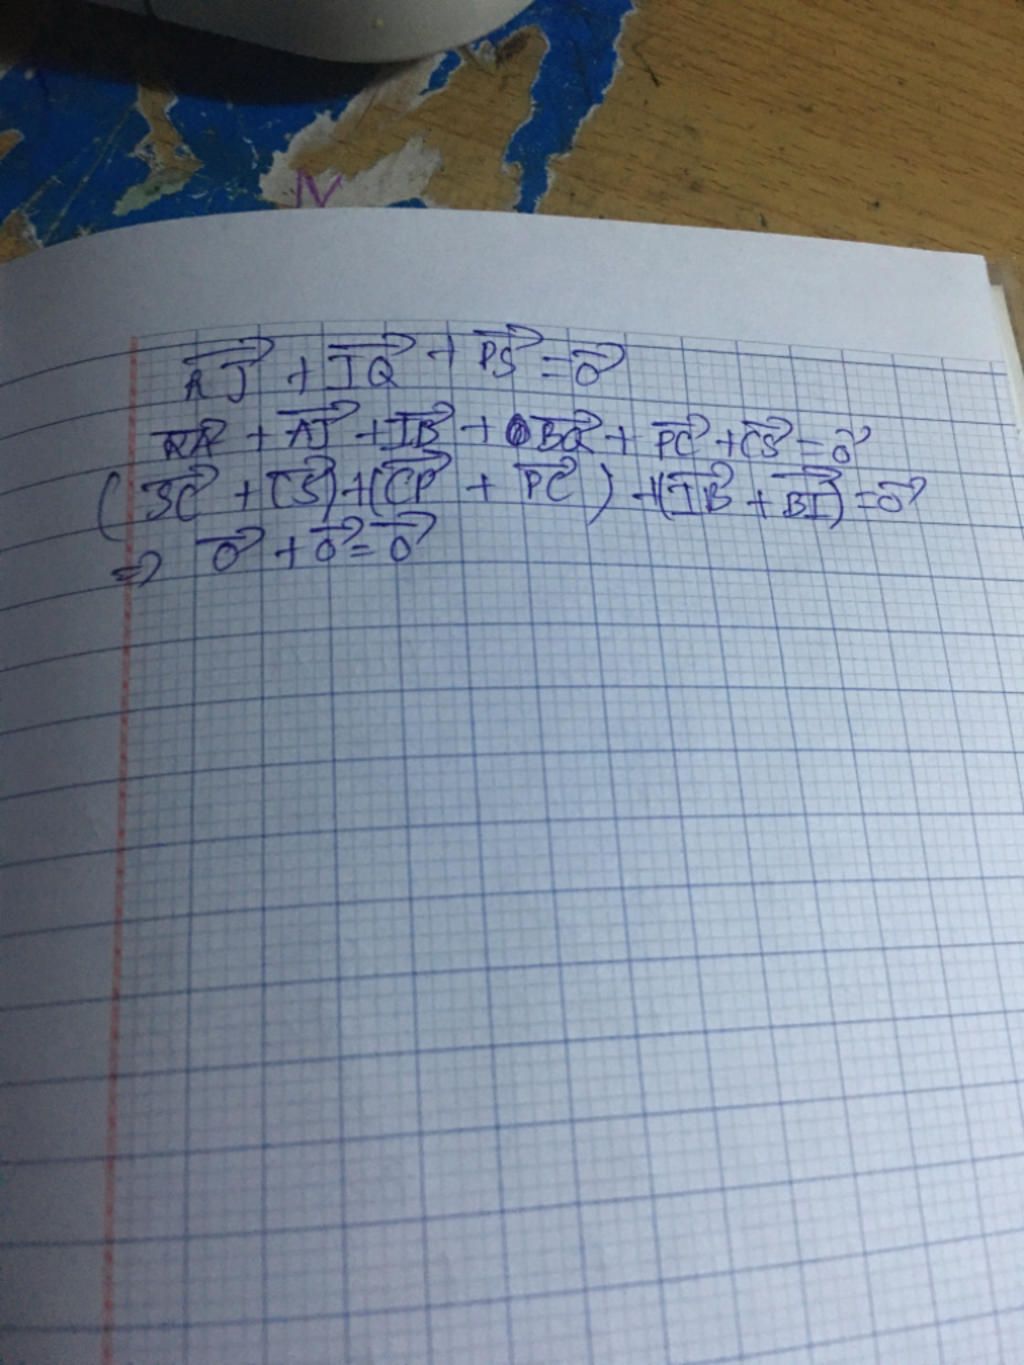 N
RJ + IQ + PS = 0
RA + AJ + IB + BQ + PC + CS = 0
(SC + CS) + (CP + PC) + (IB + BI) = 0
⇒ 0 + 0 = 0